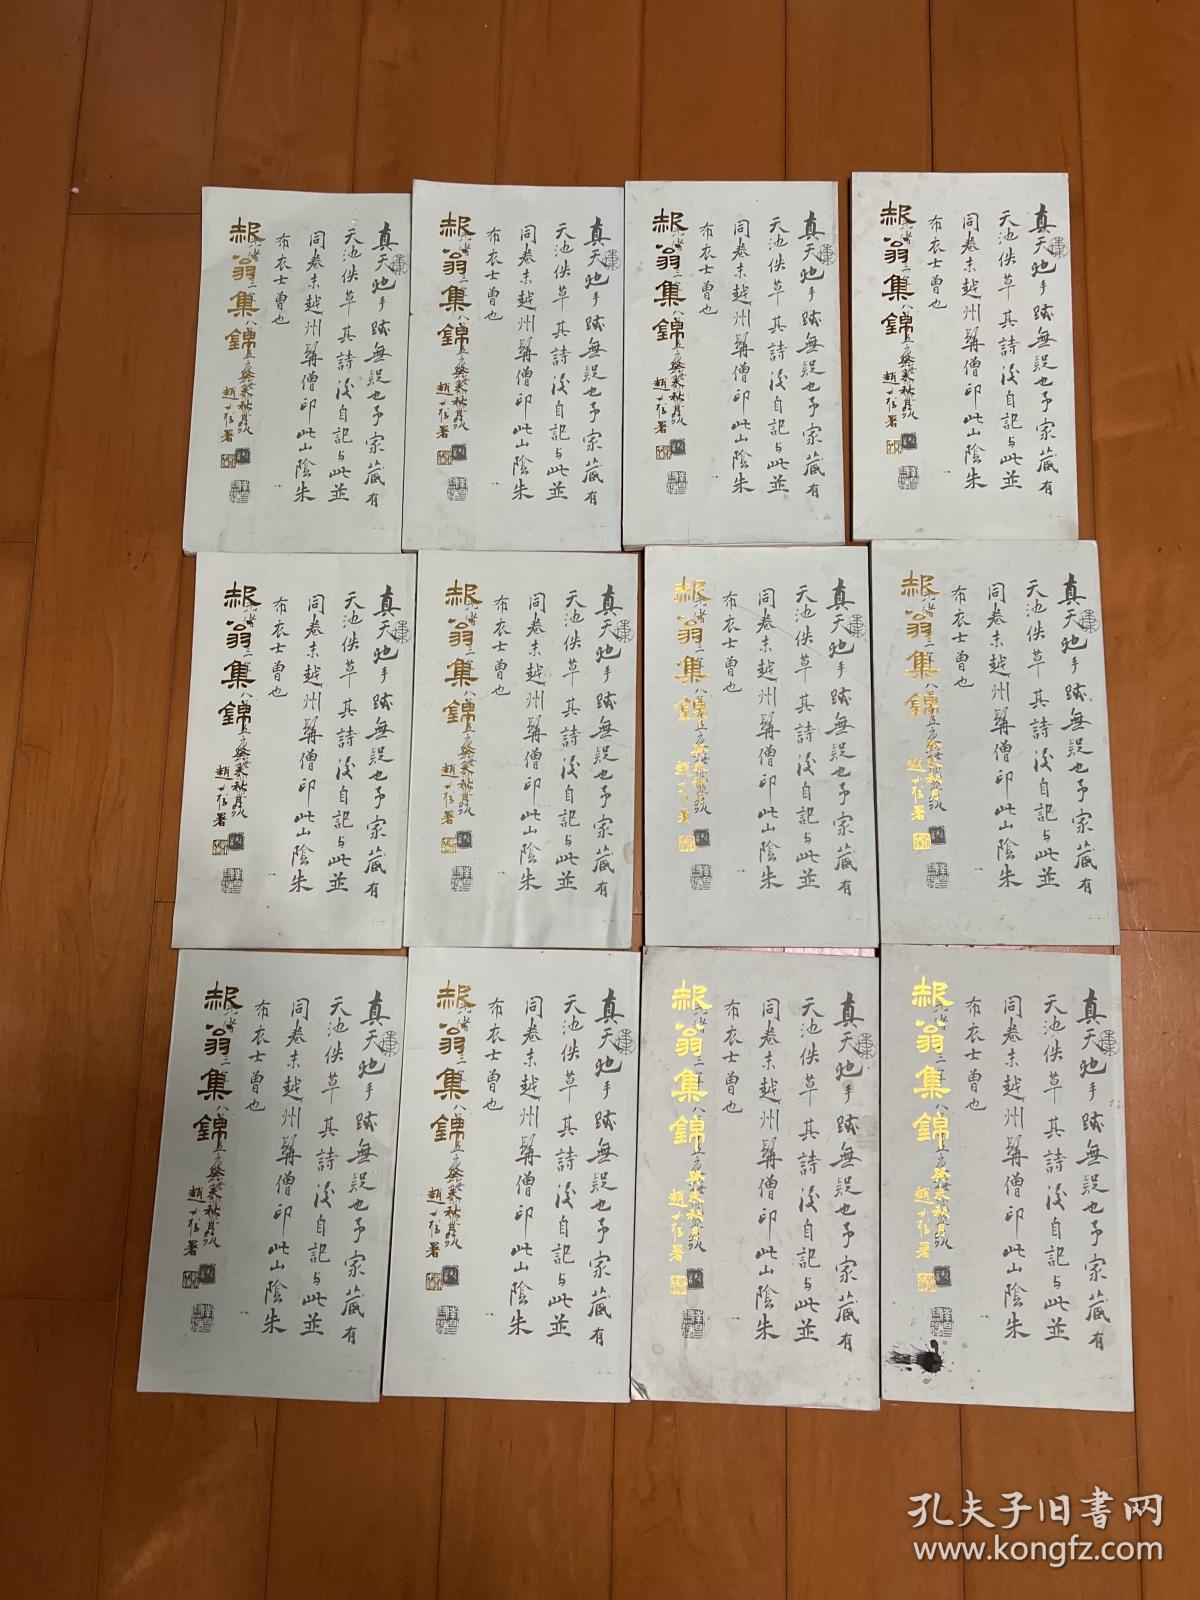 真天池手跡無誤也予家藏有
天池佚草其詩後自記与此並
同卷末越州髯僧印此山陰朱
布衣士曾也
赧翁集錦
癸未秋月
真天池手跡無誤也予家藏有
天池佚草其詩後自記与此並
同卷末越州髯僧印此山陰朱
布衣士曾也
赧翁集錦
癸未秋月
真天池手跡無誤也予家藏有
天池佚草其詩後自記与此並
同卷末越州髯僧印此山陰朱
布衣士曾也
赧翁集錦
癸未秋月
真天池手跡無誤也予家藏有
天池佚草其詩後自記与此並
同卷末越州髯僧印此山陰朱
布衣士曾也
赧翁集錦
癸未秋月
真天池手跡無誤也予家藏有
天池佚草其詩後自記与此並
同卷末越州髯僧印此山陰朱
布衣士曾也
赧翁集錦
癸未秋月
真天池手跡無誤也予家藏有
天池佚草其詩後自記与此並
同卷末越州髯僧印此山陰朱
布衣士曾也
赧翁集錦
癸未秋月
真天池手跡無誤也予家藏有
天池佚草其詩後自記与此並
同卷末越州髯僧印此山陰朱
布衣士曾也
赧翁集錦
癸未秋月
真天池手跡無誤也予家藏有
天池佚草其詩後自記与此並
同卷末越州髯僧印此山陰朱
布衣士曾也
赧翁集錦
癸未秋月
真天池手跡無誤也予家藏有
天池佚草其詩後自記与此並
同卷末越州髯僧印此山陰朱
布衣士曾也
赧翁集錦
癸未秋月
真天池手跡無誤也予家藏有
天池佚草其詩後自記与此並
同卷末越州髯僧印此山陰朱
布衣士曾也
赧翁集錦
癸未秋月
真天池手跡無誤也予家藏有
天池佚草其詩後自記与此並
同卷末越州髯僧印此山陰朱
布衣士曾也
赧翁集錦
癸未秋月
真天池手跡無誤也予家藏有
天池佚草其詩後自記与此並
同卷末越州髯僧印此山陰朱
布衣士曾也
赧翁集錦
癸未秋月
孔夫子旧书网
www.kongfz.com